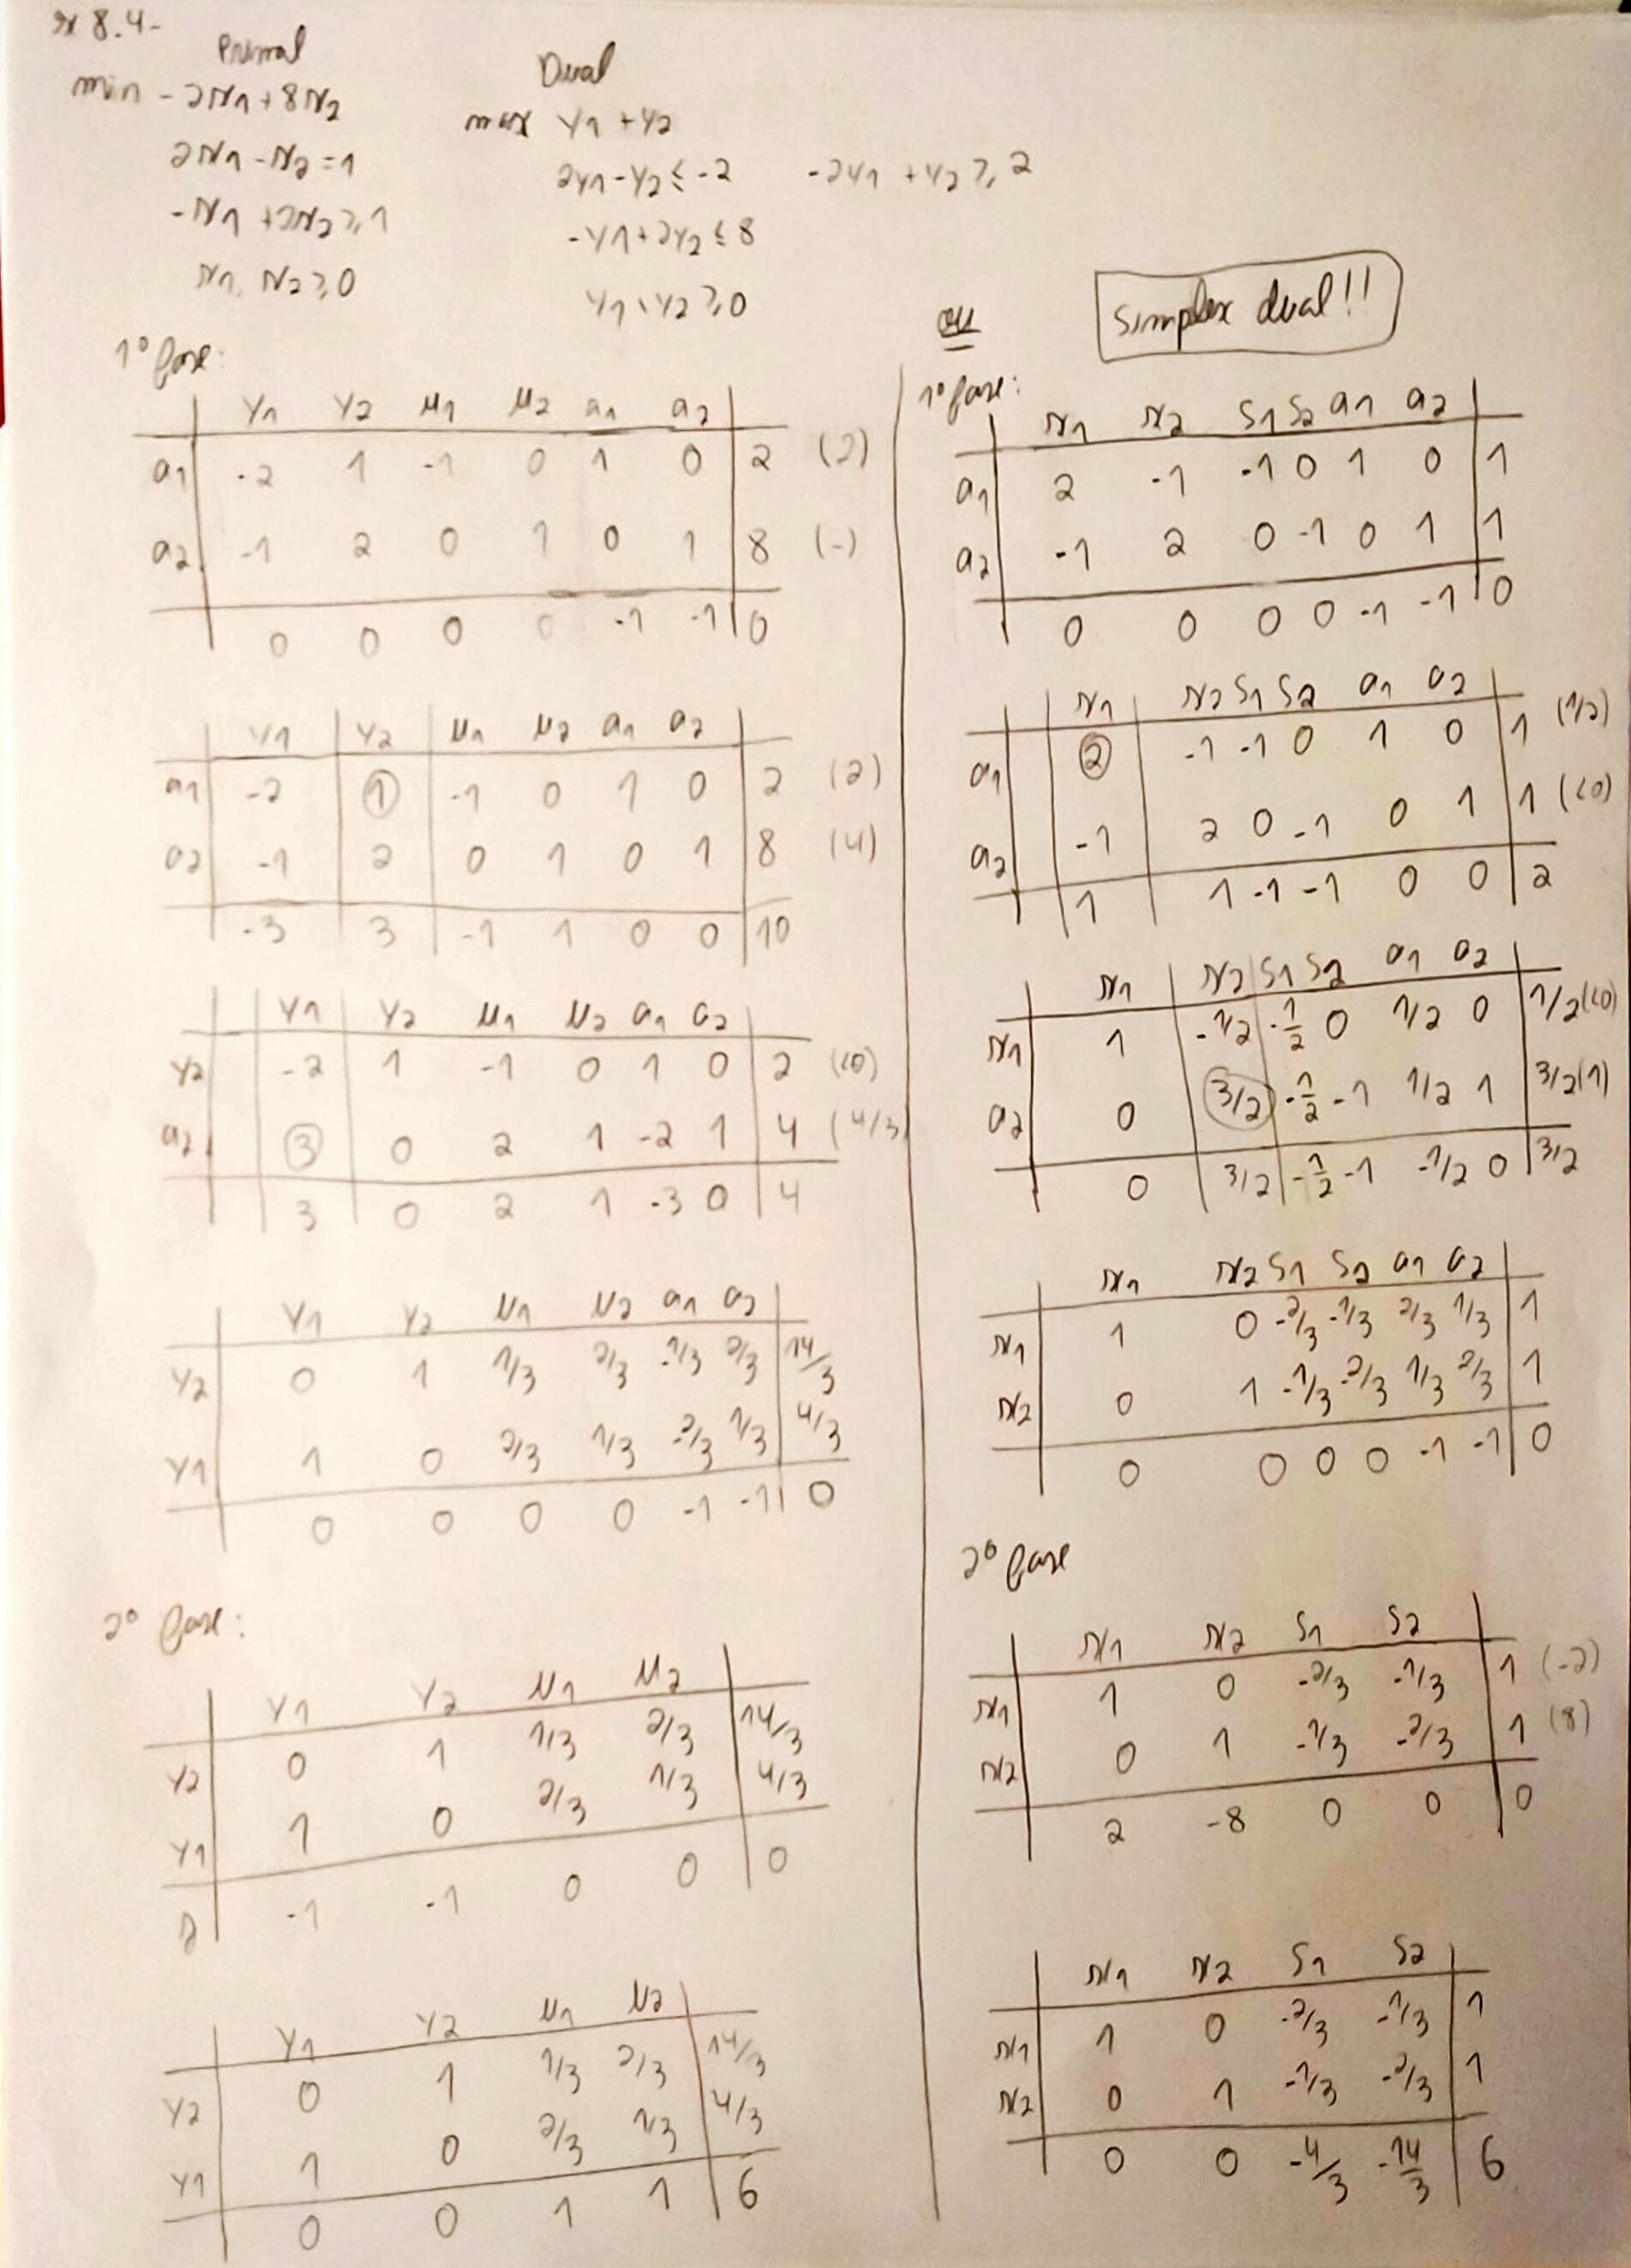 ex 8.4-
Primal
min -2x1+8x2
2x1-x2=1
-x1+2x2≥1
x1, x2≥0
Dual
max y1+y2
2y1-y2≤-2    -2y1+y2≥2
-y1+2y2≤8
y1, y2≥0
1º fase:
y1 y2 u1 u2 a1 a2
a1 -2 1 -1 0 1 0 2 (2)
a2 -1 2 0 1 0 1 8 (-)
0 0 0 0 -1 -1 0
y1 y2 u1 u2 a1 a2
a1 -2 1 -1 0 1 0 2 (2)
a2 -1 2 0 1 0 1 8 (4)
-3 3 -1 1 0 0 10
y1 y2 u1 u2 a1 a2
y2 -2 1 -1 0 1 0 2 (<0)
a2 3 0 2 1 -2 1 4 (4/3)
3 0 2 1 -3 0 4
y1 y2 u1 u2 a1 a2
y2 0 1 1/3 2/3 -1/3 2/3 14/3
y1 1 0 2/3 1/3 -2/3 1/3 4/3
0 0 0 0 -1 -1 0
2º fase:
y1 y2 u1 u2
y2 0 1 1/3 2/3 14/3
y1 1 0 2/3 1/3 4/3
-1 -1 0 0 0
y1 y2 u1 u2
y2 0 1 1/3 2/3 14/3
y1 1 0 2/3 1/3 4/3
0 0 1 1 6
ou
simplex dual!!
1º fase:
x1 x2 s1 s2 a1 a2
a1 2 -1 -1 0 1 0 1
a2 -1 2 0 -1 0 1 1
0 0 0 0 -1 -1 0
x1 x2 s1 s2 a1 a2
a1 2 -1 -1 0 1 0 1 (1/2)
a2 -1 2 0 -1 0 1 1 (<0)
1 1 -1 -1 0 0 2
x1 x2 s1 s2 a1 a2
x1 1 -1/2 -1/2 0 1/2 0 1/2 (<0)
a2 0 3/2 -1/2 -1 1/2 1 3/2 (1)
0 3/2 -1/2 -1 -1/2 0 3/2
x1 x2 s1 s2 a1 a2
x1 1 0 -2/3 -1/3 2/3 1/3 1
x2 0 1 -1/3 -2/3 1/3 2/3 1
0 0 0 0 -1 -1 0
2º fase
x1 x2 s1 s2
x1 1 0 -2/3 -1/3 1 (-2)
x2 0 1 -1/3 -2/3 1 (8)
2 -8 0 0 0
x1 x2 s1 s2
x1 1 0 -2/3 -1/3 1
x2 0 1 -1/3 -2/3 1
0 0 -4/3 -14/3 6